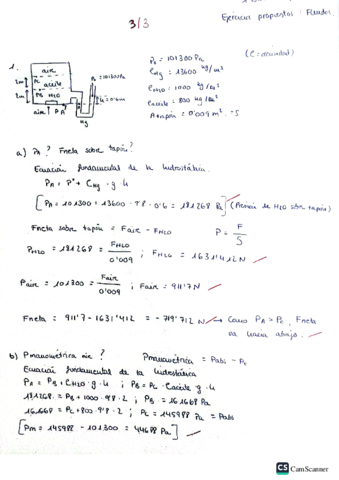 3/3
Ejercicios propuestos: Fluidos.
1.
air
aceite
H2O
2m
2m
Hg
air
PA
P0 = 101300 Pa
h = 0.6m
P0 = 101300 Pa
ρHg = 13600 kg/m³
ρH2O = 1000 kg/m³
ρaceite = 800 kg/m³
Atapón = 0'009 m² = S
(ρ = densidad)
a) PA? Fneta sobre tapón?
Ecuación fundamental de la hidrostática.
PA = P0 + ρHg · g · h
[PA = 101300 + 13600 · 9'8 · 0'6 = 181268 Pa] (Presión de H2O sobre tapón)
Fneta sobre tapón = Fair - FH2O
P = F/S
PH2O = 181268 = FH2O/0'009 ; FH2O = 1631'412 N
Pair = 101300 = Fair/0'009 ; Fair = 911'7 N
Fneta = 911'7 - 1631'412 = - 719'712 N → Como PA > P0, Fneta
va hacia abajo.
b) Pmanométrica air? Pmanométrica = Pabs - P0
Ecuación fundamental de la hidrostática
PA = PB + ρH2O · g · h ; PB = PC + ρaceite · g · h
181268 = PB + 1000 · 9'8 · 2 ; PB = 161668 Pa
161668 = PC + 800 · 9'8 · 2 ; PC = 145988 Pa = Pabs
[Pm = 145988 - 101300 = 44688 Pa]
CS CamScanner